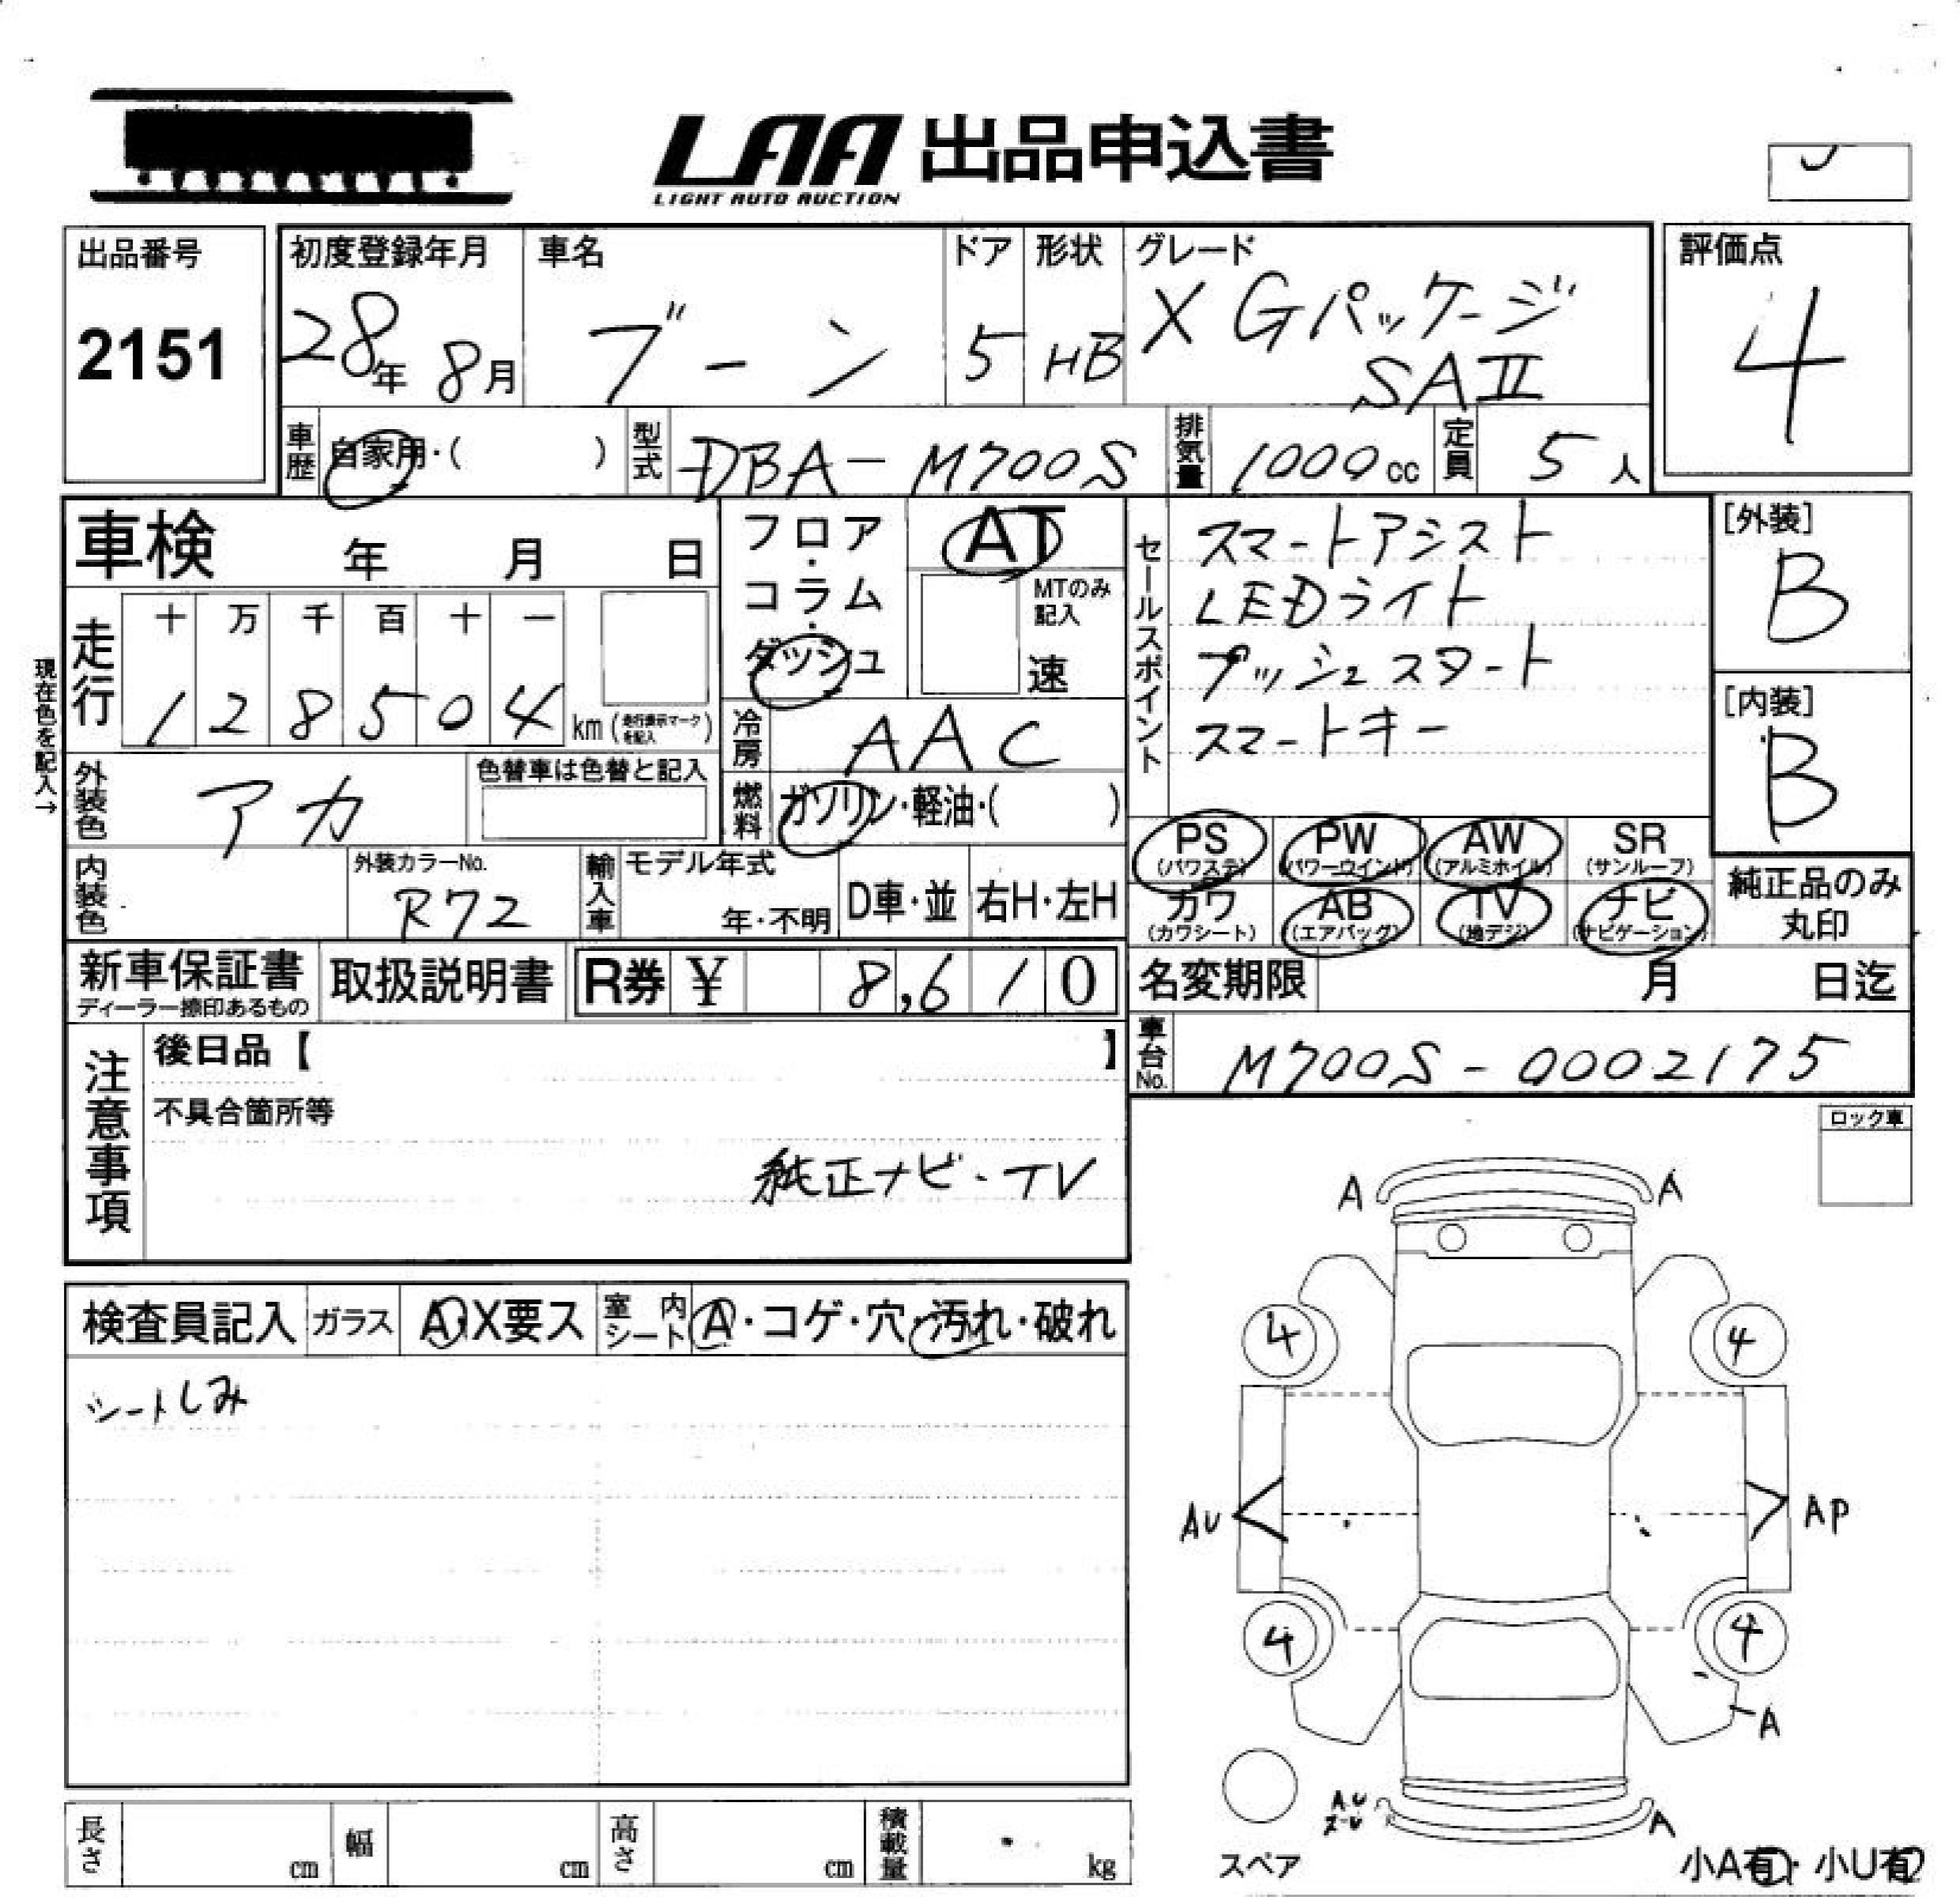 LAA 出品申込書
LIGHT AUTO AUCTION
出品番号
2151
初度登録年月
28年 8月
車名
ブーン
ドア
5
形状
HB
グレード
X Gパッケージ
SAⅡ
評価点
4
車歴 自家用・( )
型式 DBA-M700S
排気量 1000cc
定員 5人
車検 年 月 日
フロア・コラム・ダッシュ
AT
MTのみ記入
速
セールスポイント
スマートアシスト
LEDライト
プッシュスタート
スマートキー
[外装]
B
[内装]
B
現在色を記入→
走行
十 万 千 百 十 一
1 2 8 5 0 4 km (走行表示マークを記入)
冷房 AAC
外装色 アカ
色替車は色替と記入
燃料 ガソリン・軽油・( )
内装色
外装カラーNo.
R72
輸入車 モデル年式
年・不明
D車・並 右H・左H
PS (パワステ) PW (パワーウインド) AW (アルミホイル) SR (サンルーフ)
カワ (カワシート) AB (エアバッグ) TV (地デジ) ナビ (ナビゲーション)
純正品のみ
丸印
新車保証書
ディーラー捺印あるもの
取扱説明書
R券 ¥ 8,610
名変期限 月 日迄
車台No. M700S-0002175
注意事項
後日品【 】
不具合箇所等
純正ナビ・TV
ロック車
検査員記入 ガラス A・X要ス 室内シート A・コゲ・穴・汚れ・破れ
シートしみ
A A
4 4
AU AP
4 4
A
AU
A
スペア
小A有・小U有
長さ cm 幅 cm 高さ cm 積載量 kg